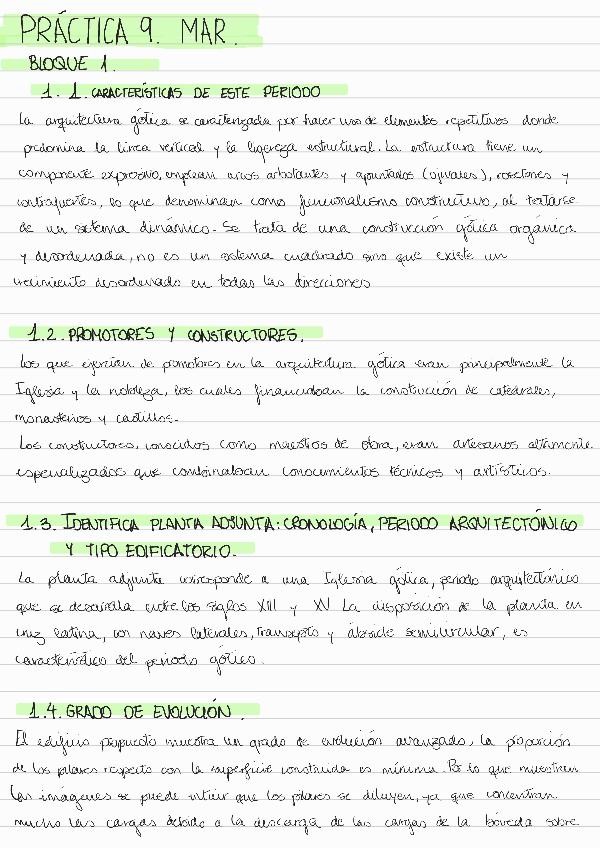 PRÁCTICA 9. MAR.
BLOQUE 1.
1.1. CARACTERÍSTICAS DE ESTE PERIODO
La arquitectura gótica se caracterizada por hacer uso de elementos repetitivos donde
predomina la línea vertical y la ligereza estructural. La estructura tiene un
componente expresivo, emplean arcos arbotantes y apuntados (ojivales), rosetones y
contrafuertes, lo que denominan como funcionalismo constructivo, al tratarse
de un sistema dinámico. Se trata de una construcción gótica orgánica
y desordenada, no es un sistema cuadrado sino que existe un
crecimiento desordenado en todas las direcciones
1.2. PROMOTORES Y CONSTRUCTORES.
Los que ejercían de promotores en la arquitectura gótica eran principalmente la
Iglesia y la nobleza, los cuales financiaban la construcción de catedrales,
monasterios y castillos.
Los constructores, conocidos como maestros de obra, eran artesanos altamente
especializados que combinaban conocimientos técnicos y artísticos.
1.3. IDENTIFICA PLANTA ADJUNTA: CRONOLOGÍA, PERIODO ARQUITECTÓNICO
Y TIPO EDIFICATORIO.
La planta adjunta corresponde a una Iglesia gótica, periodo arquitectónico
que se desarrolla entre los siglos XIII y XV. La disposición de la planta en
cruz latina, con naves laterales, transepto y ábside semicircular, es
característico del periodo gótico.
1.4. GRADO DE EVOLUCIÓN.
El edificio propuesto muestra un grado de evolución avanzado, la proporción
de los pilares respecto con la superficie construida es mínima. Por lo que muestran
las imágenes se puede intuir que los pilares se diluyen, ya que concentran
mucho las cargas debido a la descarga de las cargas de la bóveda sobre